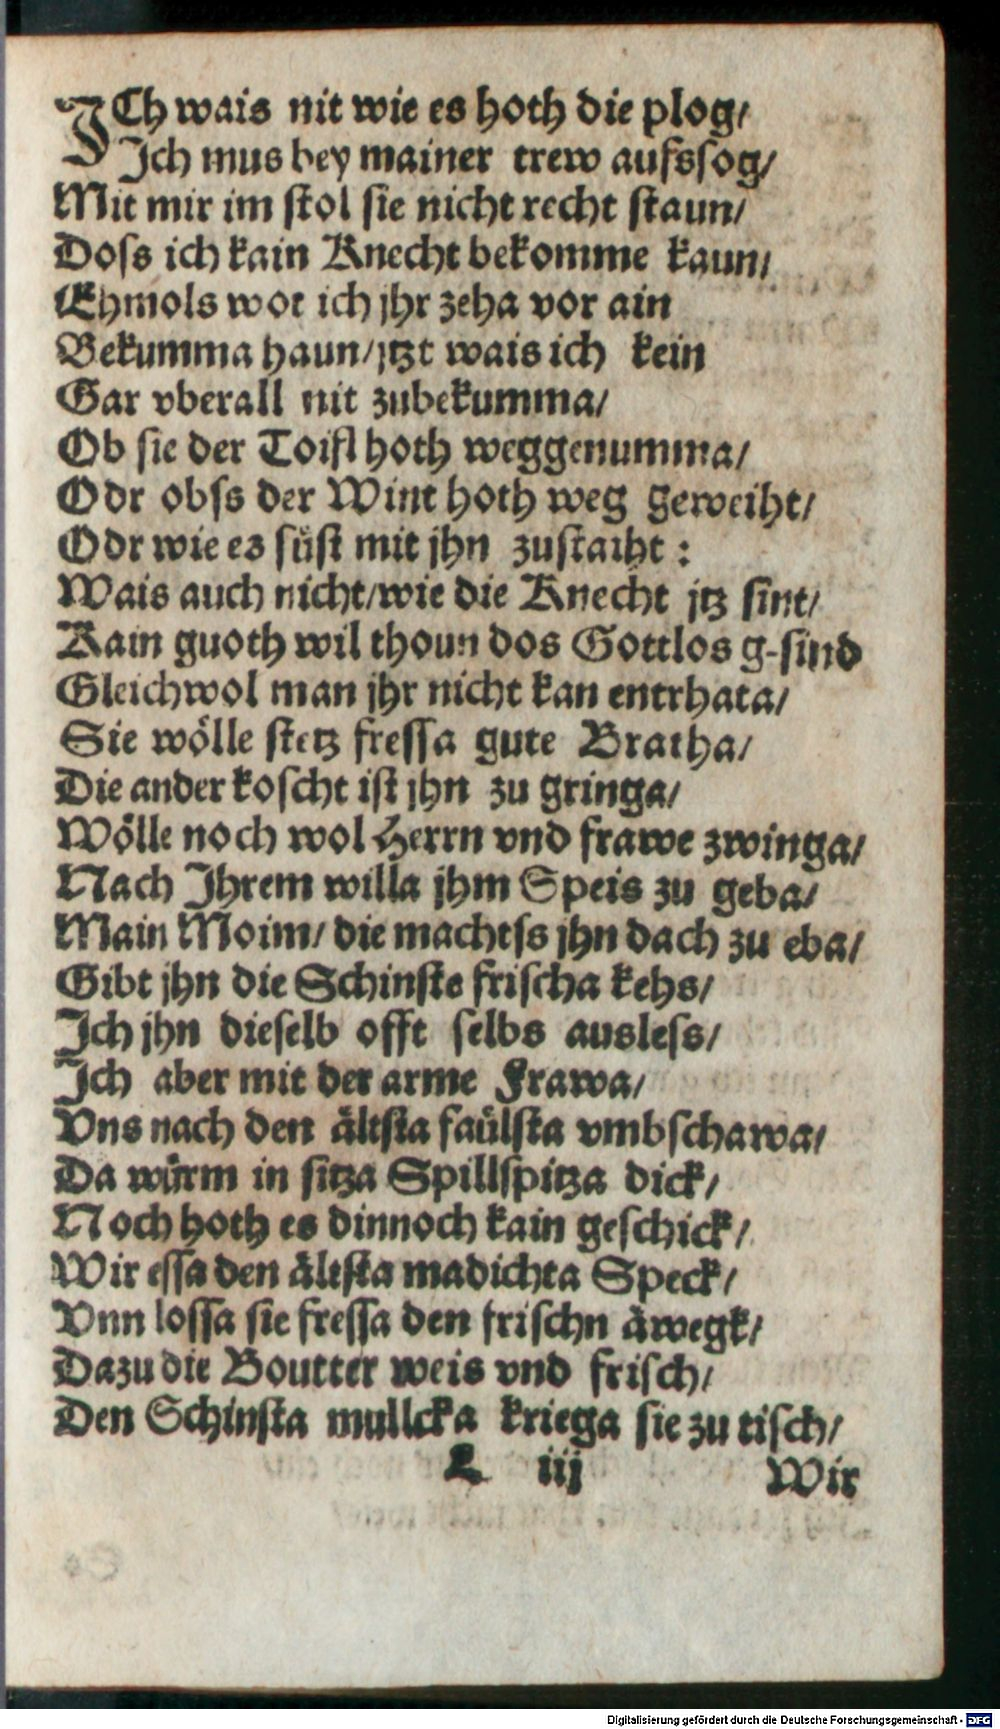 ICh wais nit wie es hoth die plog/
Ich mus bey mainer trew aufssog/
Mit mir im stol sie nicht recht staun/
Doss ich kain Knecht bekomme kaun/
Ehmols wor ich jhr zeha vor ain
Bekumma haun/ jtzt wais ich kein
Gar vberall nit zubekumma/
Ob sie der Toifl hoth weggenumma/
Odr obss der Wint hoth weg geweiht/
Odr wie es süst mit jhn zustaiht:
Wais auch nicht/wie die Knecht jtz sint/
Kain guoth wil thoun dos Gottlos g-sind
Gleichwol man jhr nicht kan entrhata/
Sie wölle stetz fressa gute Bratha/
Die ander koscht ist jhn zu gringa/
Wölle noch wol Herrn vnd frawe zwinga/
Nach Ihrem willa jhm Speis zu geba/
Main Moim/ die machtss jhn dach zu eba/
Gibt jhn die Schinste frischa kehs/
Ich jhn dieselb offt selbs ausless/
Ich aber mit der arme Frawa/
Vns nach den ältsta faülsta vmbschawa/
Da würm in sitza Spillspitza dick/
Noch hoth es dinnoch kain geschick/
Wir essa den ältsta madichta Speck/
Vnn lossa sie fressa den frischn äwegk/
Dazu die Boutter weis vnd frisch/
Den Schinsta mullcka kriega sie zu tisch/
L iij Wir
Digitalisierung gefördert durch die Deutsche Forschungsgemeinschaft - DFG